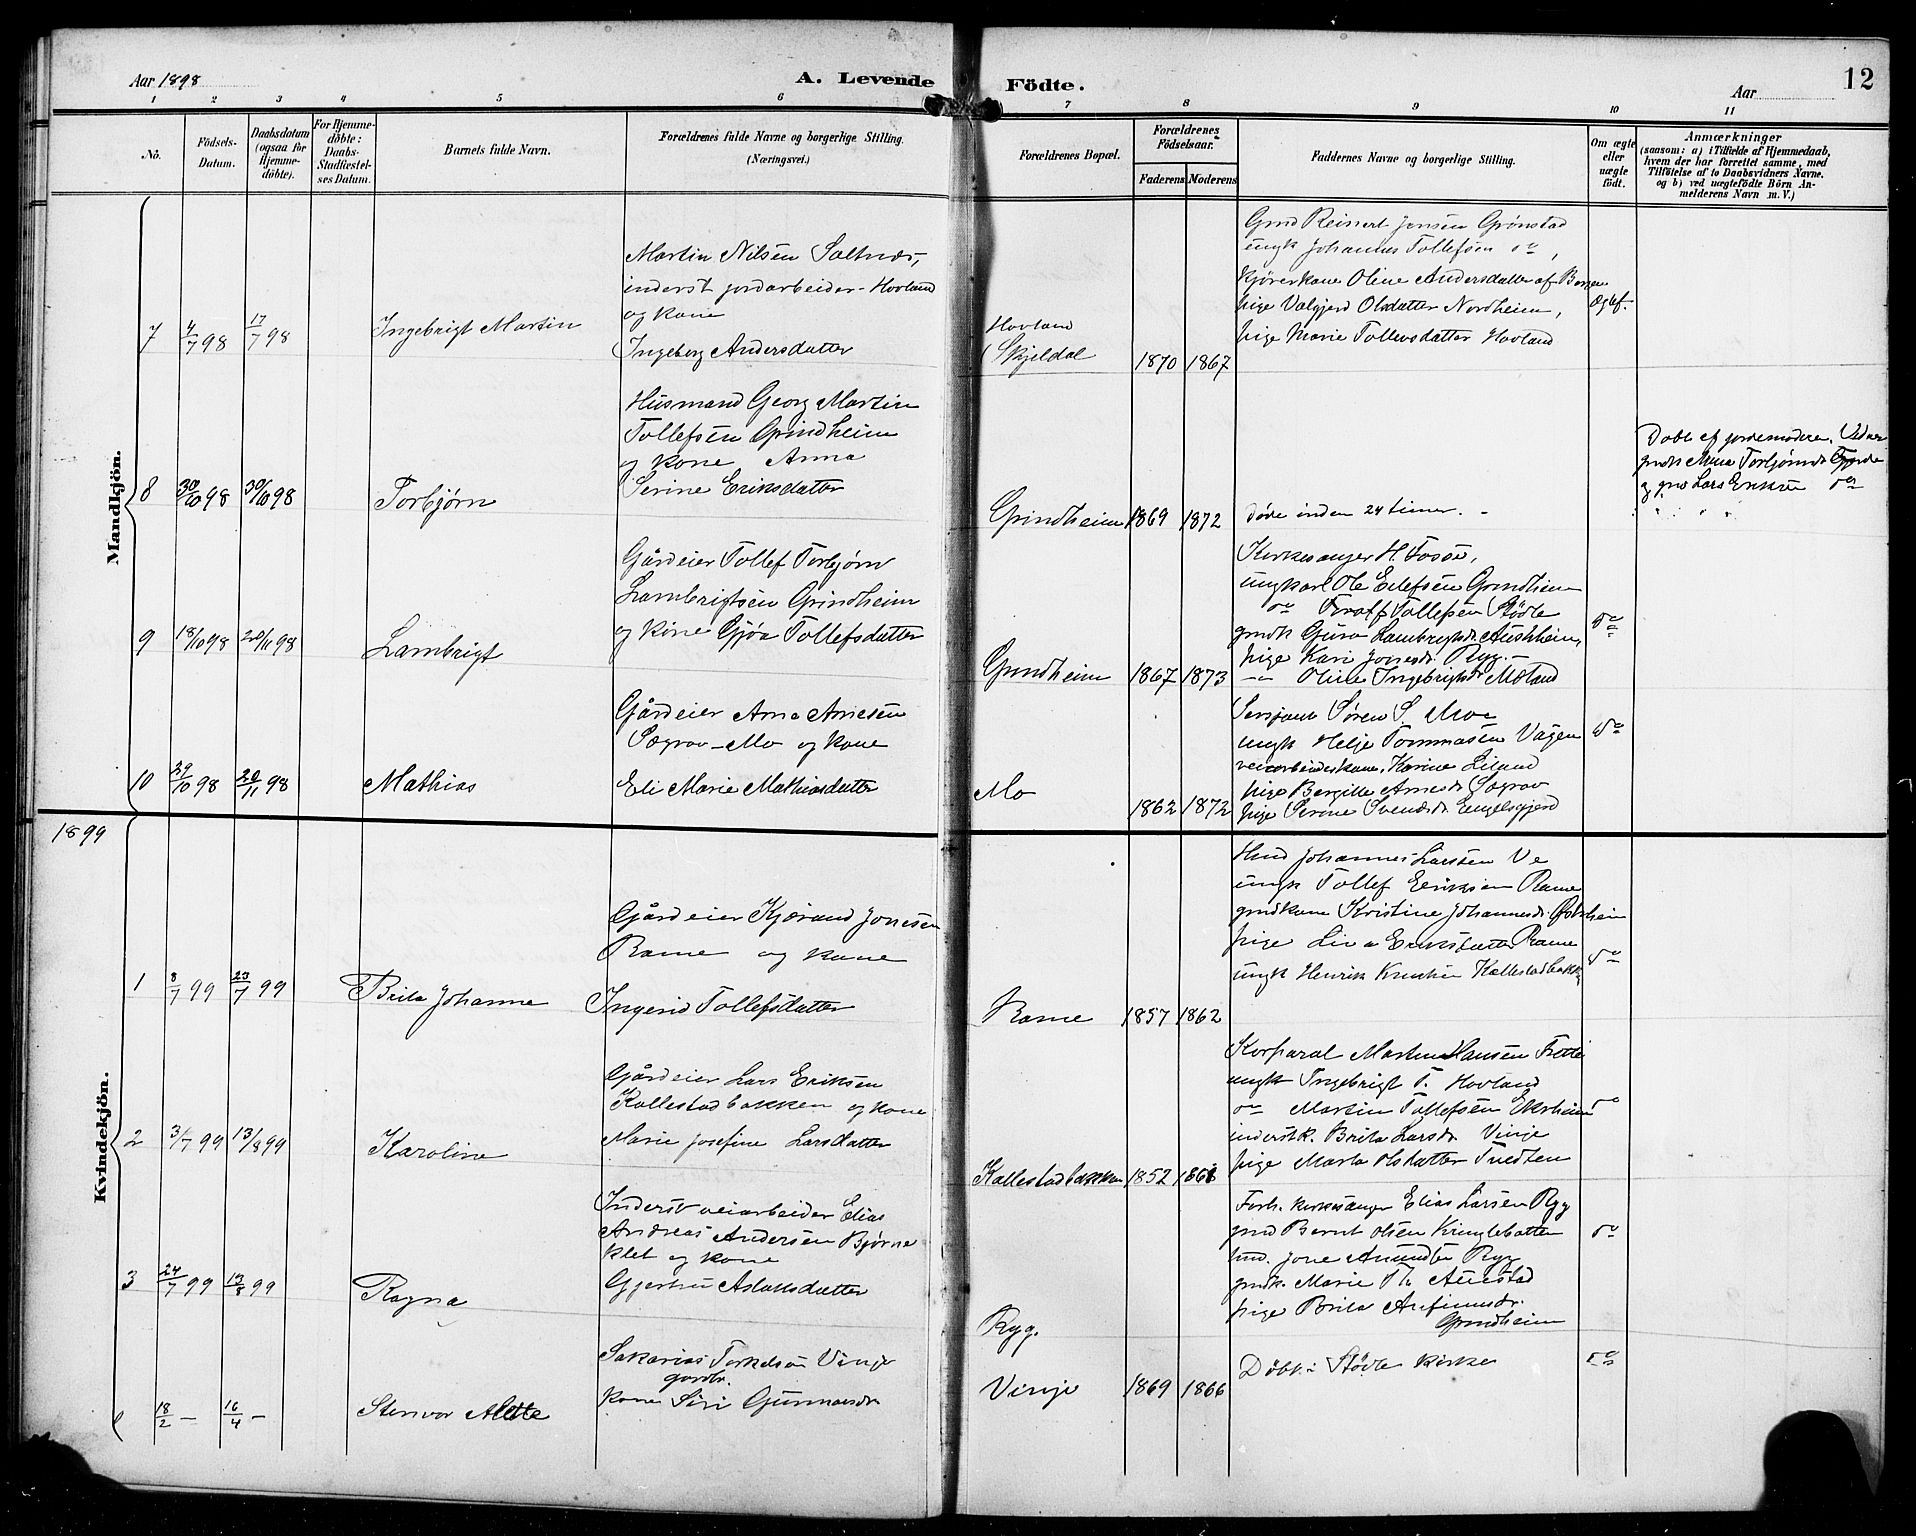 Aar 1898
A. Levende
Födte.
Aar
12
1 2 3 4 5 6 7 8 9 10 11
No.
Födsels-
Datum.
Daabsdatum
(ogsaa för
Hjemme-
döbte).
For Hjemme-
döbte:
Daabs-
Stadfæstel-
ses Datum.
Barnets fulde Navn.
Forældrenes fulde Navne og borgerlige Stilling.
(Næringsvei.)
Forældrenes Bopæl.
Forældrenes
Födselsaar.
Faderens Moderens
Faddernes Navne og borgerlige Stilling.
Om ægte
eller
uægte
födt.
Anmærkninger
(saasom: a) i Tilfælde af Hjemmedaab,
hvem der har forrettet samme, med
Tilföielse af to Daabsvidners Navne.
og b) ved uægtefödte Börn An-
melderens Navn m. V.)
Mandkjön.
7 4/7 98 17/7 98 Ingebrigt Martin
Martin Nilsen Saltnes,
inderst jordarbeider - Hovland
og kone
Ingeborg Andersdatter
Hovland
Skjeldal
1870 1867
Gmd Reinert Jensen Grønstad
ungk Johannes Tollefsen do,
kjørerkone Oline Andersdatter af Bergen
pige Valgjerd Olsdatter Nordheim,
pige Marie Tollevsdatter Hovland
Ægtef.
8 30/10 98 30/10 98 Torbjørn
Husmand Georg Martin
Tollefsen Grindheim
og kone Anna
Serine Eriksdatter
Grindheim 1869 1872
Døde inden 24 timer. -
Døbt af jordemoderen. Vidner
gmdk Anna Torbjørnsd.
og gmd Lars Eriksen do
9 18/10 98 20/11 98 Lambrigt
Gårdeier Tollef Torbjørn
Lambrigtsen Grindheim
og kone Gjøa Tollefsdatter
Grindheim 1867 1873
Kirkesanger H. Fosse,
ungkarl Ole Eilefsen Grindheim
do Tollefsen Støle
gmdk Guro Lambrigtsdr. Austheim,
pige Kari Jonesdr. Ryg -
- " - Oline Ingebrigtsdr Moland
do
10 29/10 98 20/11 98 Mathias
Gårdeier Arne Arnesen
Søgrov - Mo og kone
Eli Marie Mathiasdatter
Mo
1862 1872
Sersjant Søren S. Mo
ungk Helje Tommasen Vågen
veiarbeideskone, Karine Liland
pige Bergitte Arnesdr. Søgrov
pige Serine Svendsdr. Engelsgjerd
do
1899
Kvindekjön.
1 8/7 99 23/7 99 Brita Johanne
Gårdeier Kjørand Jonesen
Rame og kone
Ingerid Tollefsdatter
Rame 1857 1862
Hmd Johannes Larsen Ve
ungk Tollef Eriksen Rame
gmdkone Kristine Johannesdr.
pige Liva Eriksdatter Rame
ungk Henrik Knutsen Kallestadbakk
do
2 31/7 99 13/8 99 Karoline
Gårdeier Lars Eriksen
Kallestadbakken og kone
Marie Josefine Larsdatter
Kallestadbakken 1852 1861
Korporal Martin Hansen Frette
ungk Ingebrigt T. Hovland
do Martin Tollefsen Ekrheim
inderstk. Brita Larsdr. Vinje
pige Marta Olsdatter Tvedten
do
3 24/7 99 13/8 99 Ragna
Inderst veiarbeider Elias
Andreas Andersen Bjørne
klet og kone
Gjertru Aslaksdatter
Ryg.
Forh. kirkesanger Elias Larsen Ryg
gmd Bernt Olsen Kringlebotten
hmd. Jone Amundsen Ryg
gmdk. Marie Th. Austad
pige Brita Arfinnsdr.
Grindheim
do
18/2 - 16/4 - Stenvor Alette
Sakarias Torkelsen Vinje
gardbr.
kone Siri Gunnarsdr
Vinje 1869 1866
Døbt i Støle kirke
do